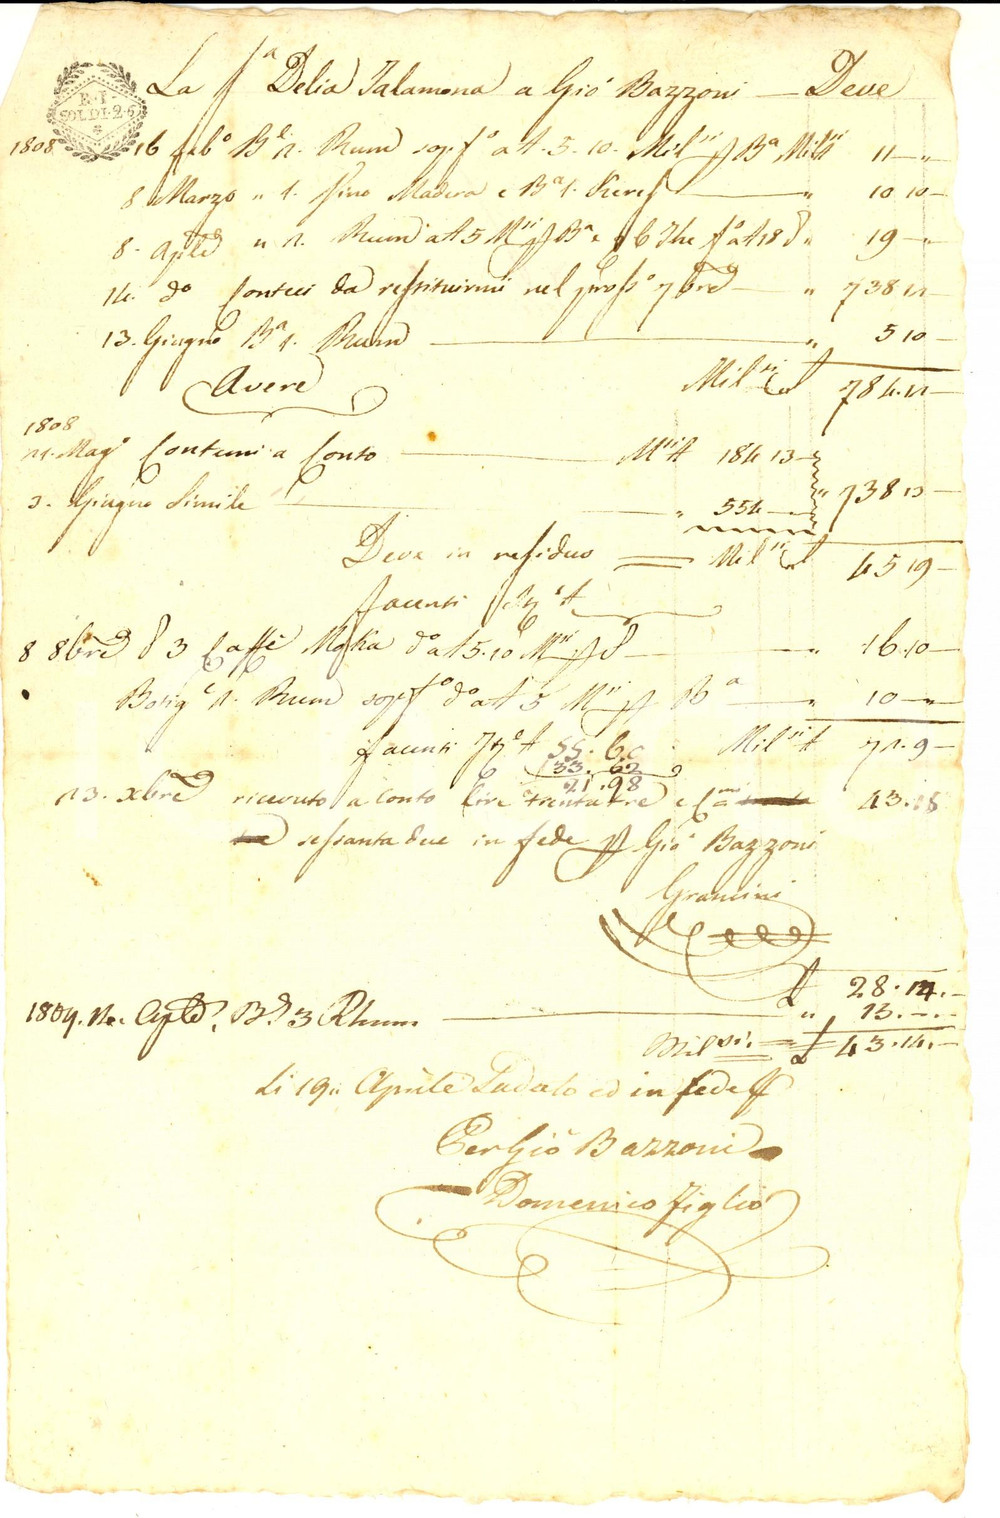 R. I.
SOLDI. 2. 6
La S.a Delia Talamona a Gio Bazzoni — Deve
1808. 16 feb.o B.e 2. Rum sop.f.o a £. 5. 10. Mil.si p B.a Mil.si 11 — "
8 Marzo " 1. fino Madera e B.a 1. Xeres " 10 10 —
8. Aple " 2. Rum a £ 5 M.si p B.a e 6 The f.o a £ 18 " 19 — "
14. d.o Contati da restituirmi nel pross.o 7bre " 738 12 —
13. Giugno B.a 1. Rum " 5 10 —
Avere Mil.si £ 784. 12 —
1808
21. Mag.o Contanti a Conto M.si £ 184 13 —
3. Giugno Simile " 554 — " 738 13 —
Deve in residuo Mil.si £ 45 19 —
facenti
8 8bre 3 Caffè Moka d.o a £ 5. 10 M.si p " 16. 10 —
Botig.e 2. Rum sop.f.o d.o a £ 5 M.si p B.a " 10 — "
facenti £ 55. 60 Mil.si £ 72. 9 —
33. 62
21. 98
23. Xbre ricevuto a conto Lire trenta tre e C.mi 43. 15
sessanta due in fede p Gio Bazzoni
Grancini
£ 28. 14. —
1809. 12. Aple. B.e 3 Rhum. " 15. —. —
Mil.si. £ 43. 14. —
Li 19. Aprile Saldato ed in fede
Per Gio Bazzoni
Domenico Figlio